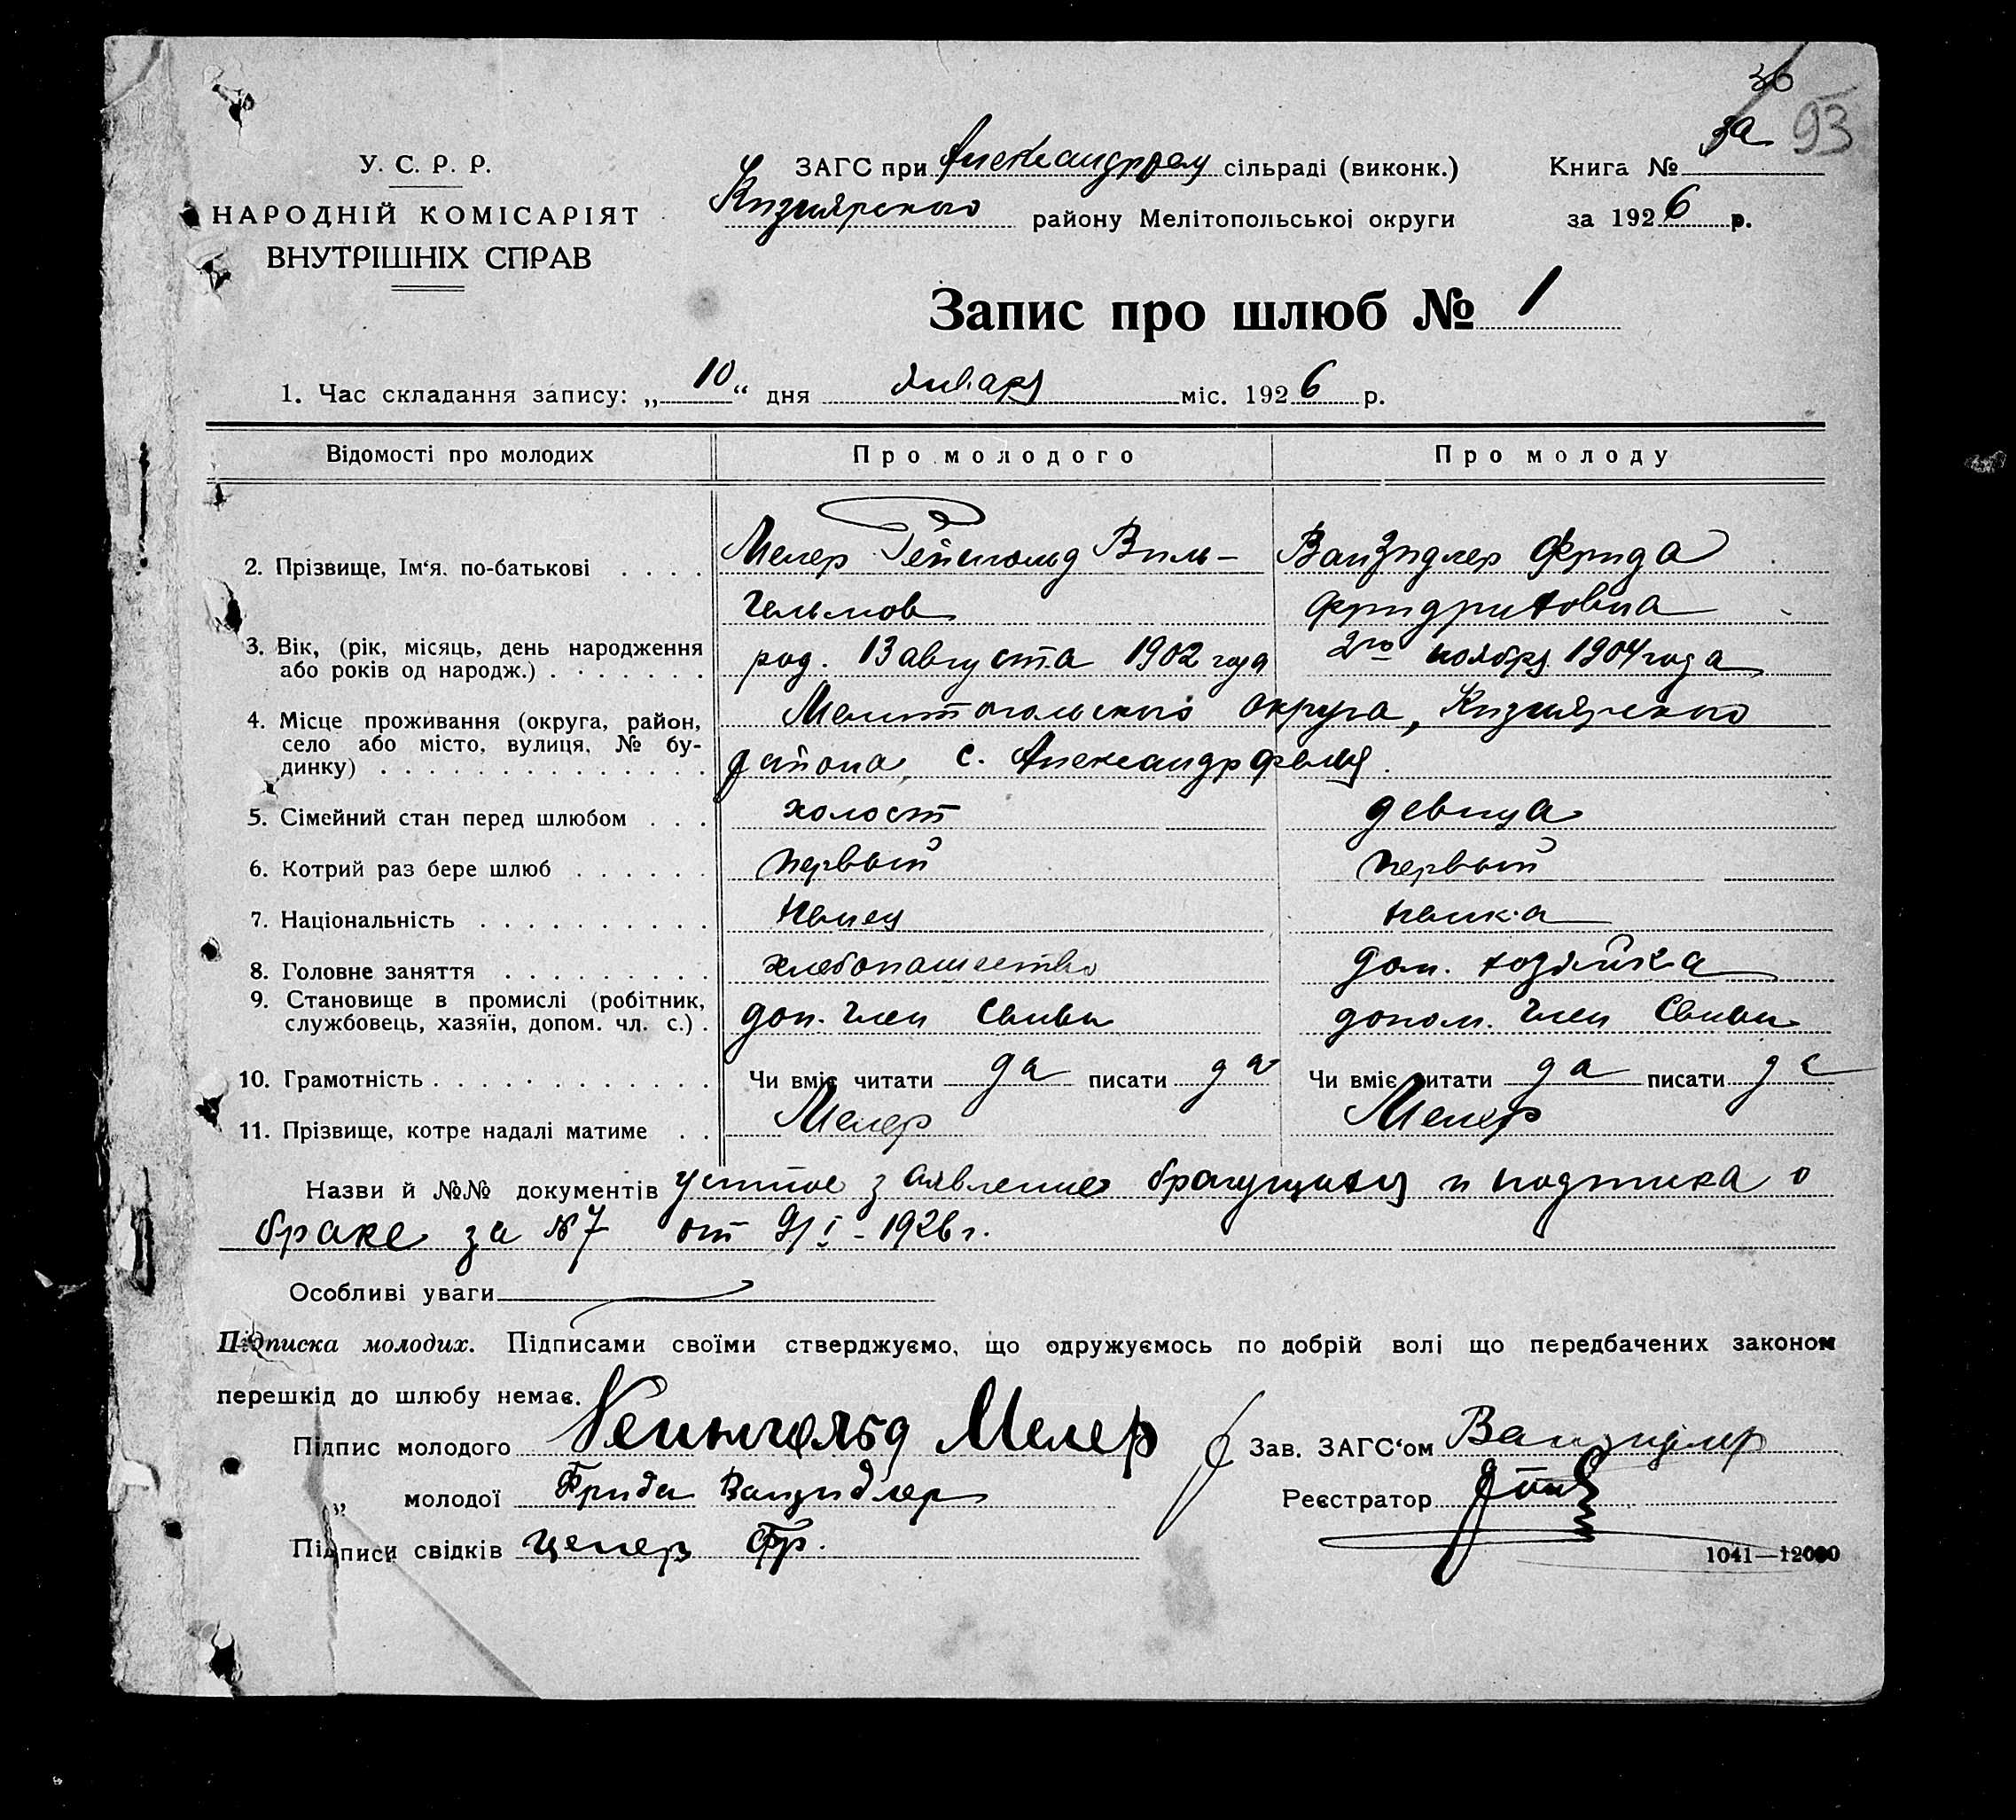 36
3а 93
У. С. Р. Р.
НАРОДНІЙ КОМІСАРІЯТ
ВНУТРІШНІХ СПРАВ
ЗАГС при сільраді (виконк.) Книга №
Кизиярского району Мелітопольської округи за 1926 р.
Запис про шлюб № 1
1. Час складання запису: „ 10 “ дня января міс. 1926 р.
Відомості про молодих Про молодого Про молоду
2. Прізвище, Ім‘я, по-батькові . . . . Мелер Рейнгольд Виль- Ванзидлер Фрида
гельмов Фридриховна
3. Вік, (рік, місяць, день народження
або років од народж.) . . . . . . . род. 13 августа 1902 года 2го ноября 1904 года
4. Місце проживання (округа, район, Мелитопольского округа, Кизиярского
село або місто, вулиця, № бу-
динку) . . . . . . . . . . . . . района, с. Александрфельд.
5. Сімейний стан перед шлюбом . . . холост девица
6. Котрий раз бере шлюб . . . . . . первый первый
7. Національність . . . . . . . . . . немец немка
8. Головне заняття . . . . . . . . . хлебопашество дом. хозяйка
9. Становище в промислі (робітник,
службовець, хазяїн, допом. чл. с.) . доп. член семьи допом. член семьи
10. Грамотність . . . . . . . . . . . . Чи вміє читати да писати да Чи вміє читати да писати да
11. Прізвище, котре надалі матиме . . Мелер Мелер
Назви й №№ документів устное заявление брачущихся и подписка о
браке за №7 от 9/I - 1926 г.
Особливі уваги
Підписка молодих. Підписами своїми стверджуємо, що одружуємось по добрій волі що передбачених законом
перешкід до шлюбу немає.
Підпис молодого Реинголбд Мелер Зав. ЗАГС‘ом Ванзидлер
„ молодої Фрида Ванзидлер Реєстратор
Підписи свідків Фр.
1041—12000